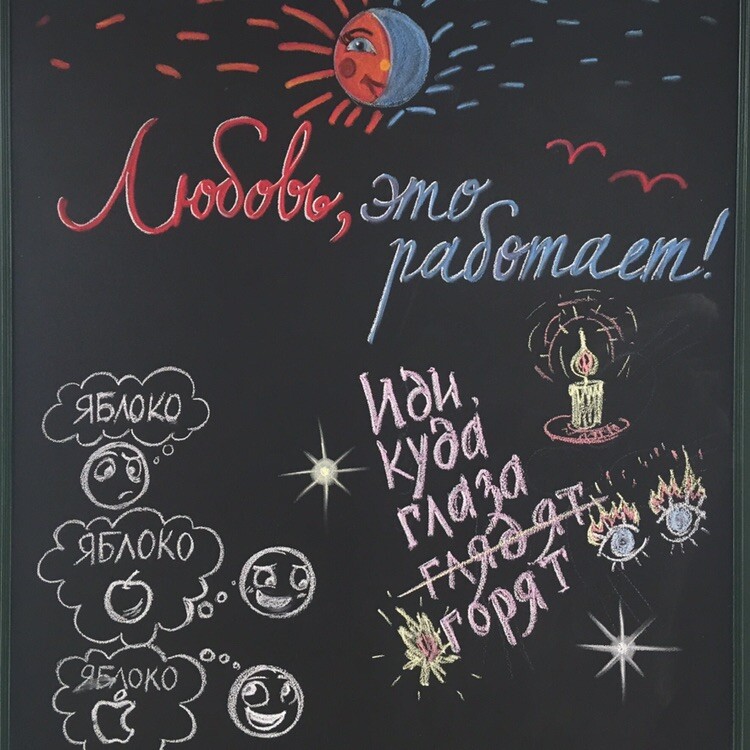 Любовь, это
работает!
ЯБЛОКО
ЯБЛОКО
ЯБЛОКО
Иди,
куда
глаза
глядят
горят